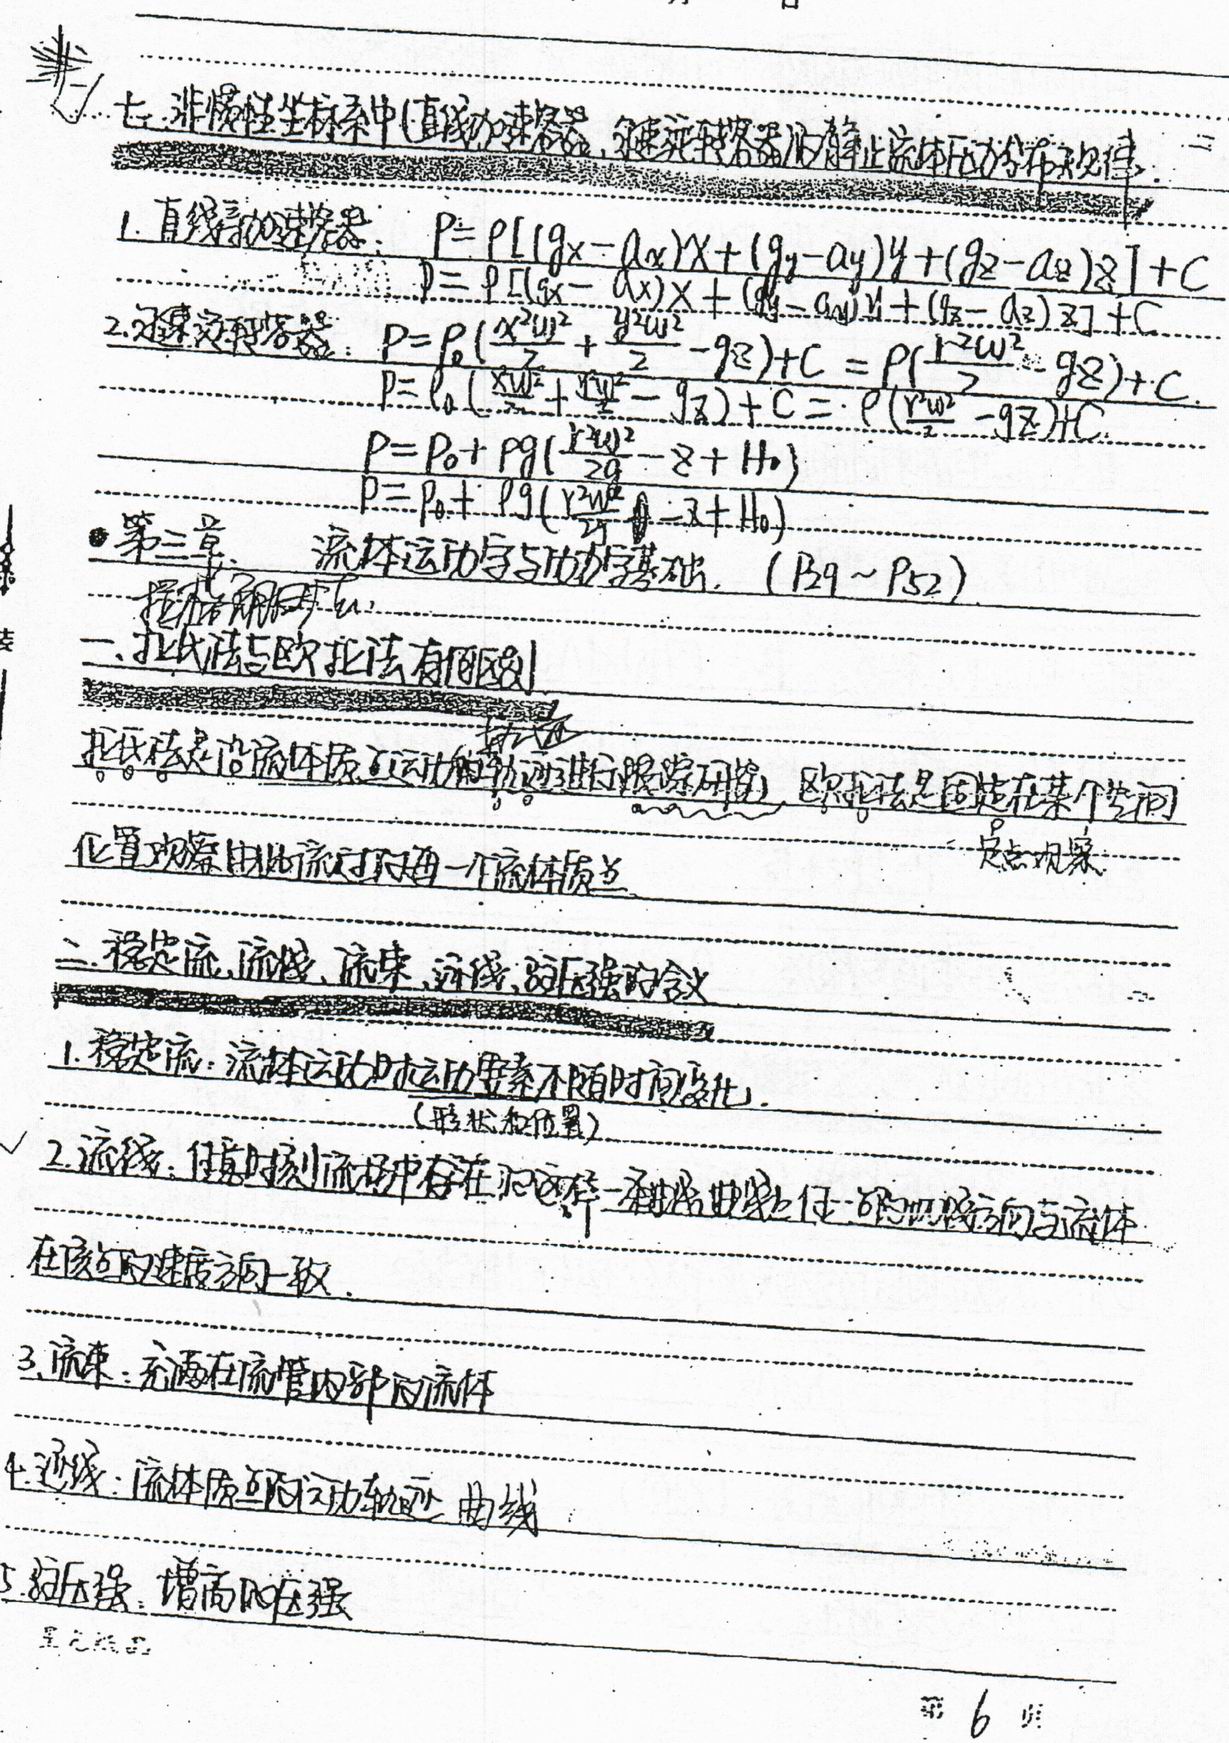 七.非惯性坐标系中(直线加速容器、匀速旋转容器)的静止流体压力分布规律.
1.直线匀加速容器: P=ρ[(gx-ax)x+(gy-ay)y+(gz-az)z]+C
P=ρ[(gx-ax)x+(gy-ay)y+(gz-az)z]+C
2.匀速旋转容器: P=ρ(x²ω²/2+y²ω²/2-gz)+C=ρ(r²ω²/2-gz)+C.
P=ρ(x²ω²/2+y²ω²/2-gz)+C=ρ(r²ω²/2-gz)+C.
P=P₀+ρg(r²ω²/2g-z+H₀)
P=P₀+ρg(r²ω²/2g-z+H₀)
第三章. 流体运动学与动力学基础. (P29~P52)
一、拉氏法与欧拉法有何区别
拉氏法是沿流体质点运动的轨迹进行跟踪研究,欧拉法是固定在某个空间
定点观察
位置观察由此流过的每一个流体质点
二.稳定流、流线、流束、迹线、驻压强的含义
1.稳定流:流体运动时运动要素不随时间变化.
(形状和位置)
2.流线:任意时刻流场中存在的这样一条曲线,曲线上任一点的切线方向与流体
在该点的速度方向一致.
3.流束:充满在流管内部的流体
4.迹线:流体质点的运动轨迹 曲线
5.驻压强:增高的压强
第 6 页